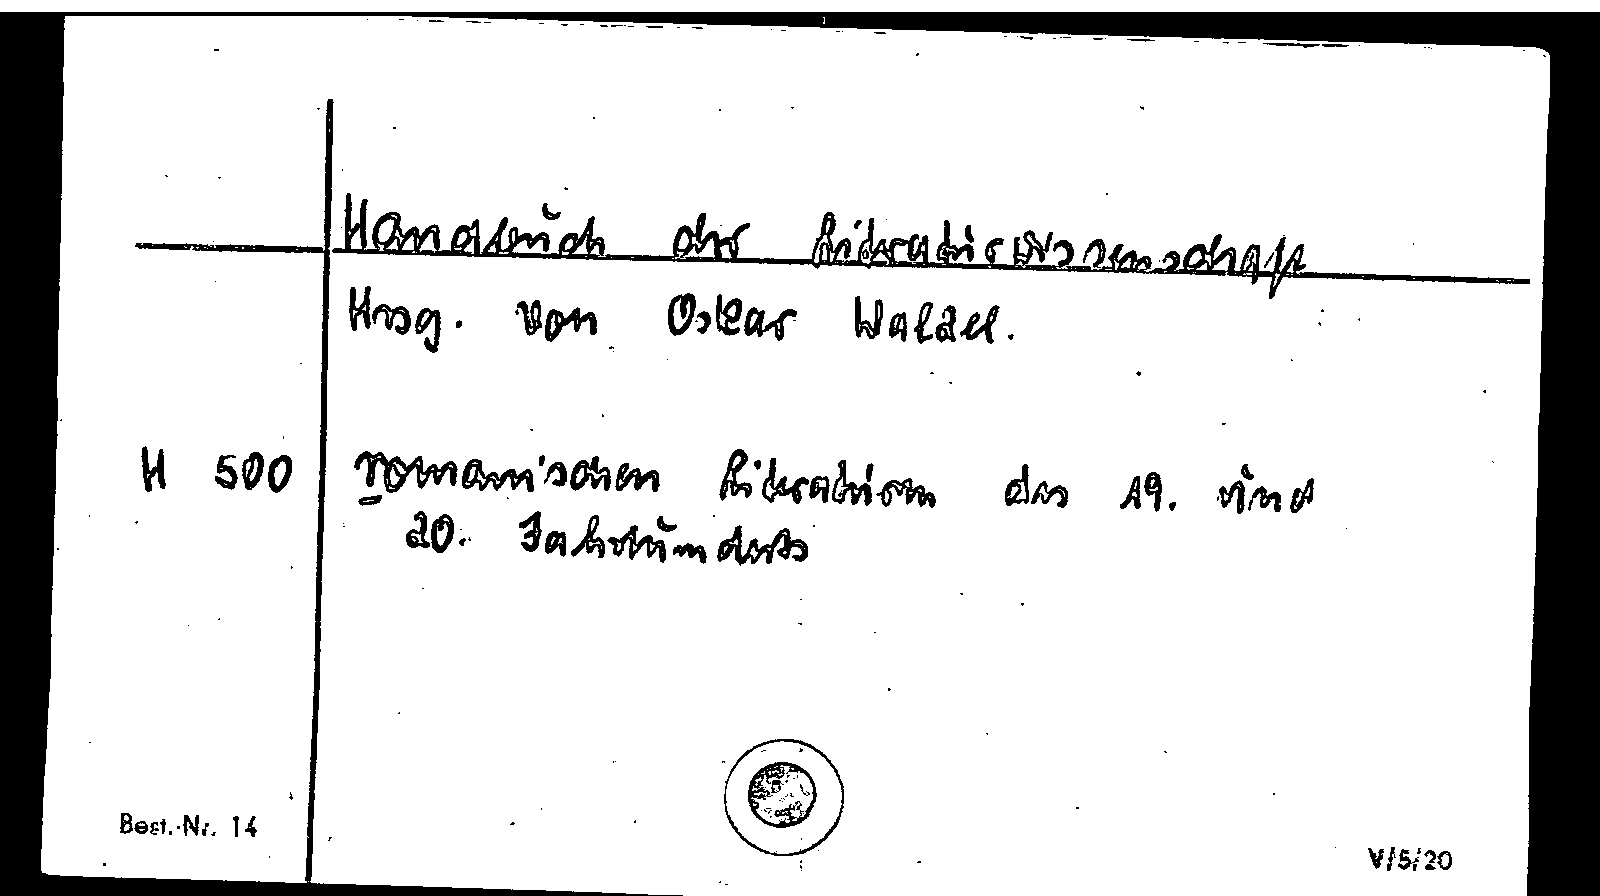 Handbuch der Literaturwissenschaft
Hrsg. von Oskar Walzel.
H 500 romanischen Literaturen des 19. und
20. Jahrhunderts
Best.-Nr. 14
V/5/20